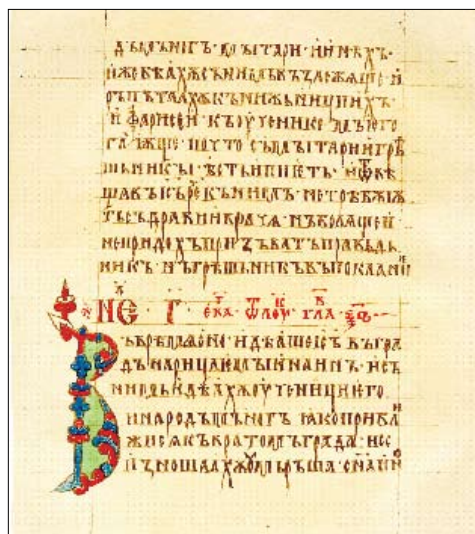 дъ мъногъ· мꙑтари· и инѣхъ·
иже бѣахѫ с нимь възлежѧще· и
ръпътаахѫ кънижьници ихъ·
и фарисеи къ оученикомъ его
глѭще· почто съ мꙑтари и грѣ
шьникꙑ ѣсте и пиете· и ѿвѣ
щавъ ıс рече къ нимъ· не трѣбоуѭ
тъ съдрави врача· нъ болѧщеи
не придохъ призъватъ правьдь
никъ· нъ грѣшьникъ въ покаание
НЕ· Г· еѵа ѿ лоу· гла
Въ врѣмѧ оно· идѣаше іс въ гра
дъ нарицаемꙑи наинъ· и съ
нимь идѣахѫ оученици его
и народъ мъногъ ꙗко прибли
жи сѧ къ вратомъ града· и се
изношаахѫ оумьръша сна ино